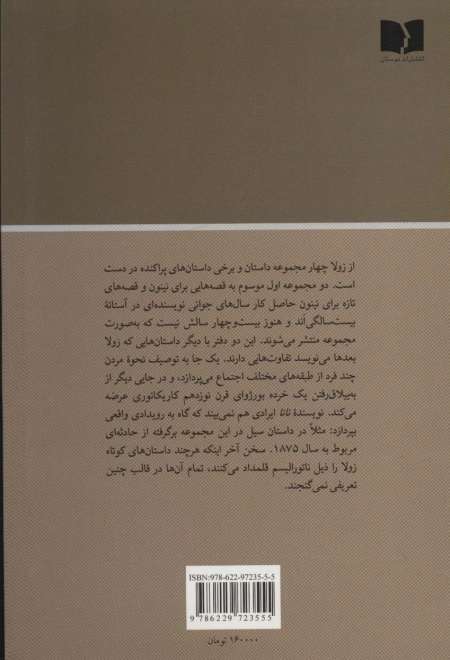 انتشارات دوستان
از زولا چهار مجموعه داستان و برخی داستان‌های پراکنده در دست
است. دو مجموعه اول موسوم به قصه‌هایی برای نینون و قصه‌های
تازه برای نینون حاصل کار سال‌های جوانی نویسنده‌ای در آستانهٔ
بیست‌سالگی‌اند و هنوز بیست‌وچهار سالش نیست که به‌صورت
مجموعه منتشر می‌شوند. این دو دفتر با دیگر داستان‌هایی که زولا
بعدها می‌نویسد تفاوت‌هایی دارند. یک جا به توصیف نحوهٔ مردن
چند فرد از طبقه‌های مختلف اجتماع می‌پردازد، و در جایی دیگر از
به‌ییلاق‌رفتن یک خرده بورژوای قرن نوزدهم کاریکاتوری عرضه
می‌کند. نویسندهٔ نانا ایرادی هم نمی‌بیند که گاه به رویدادی واقعی
بپردازد: مثلاً در داستان سیل در این مجموعه برگرفته از حادثه‌ای
مربوط به سال ۱۸۷۵. سخن آخر اینکه هرچند داستان‌های کوتاه
زولا را ذیل ناتورالیسم قلمداد می‌کنند، تمام آن‌ها در قالب چنین
تعریفی نمی‌گنجند.
ISBN:978-622-97235-5-5
9 786229 723555
۱۶۰۰۰۰ تومان